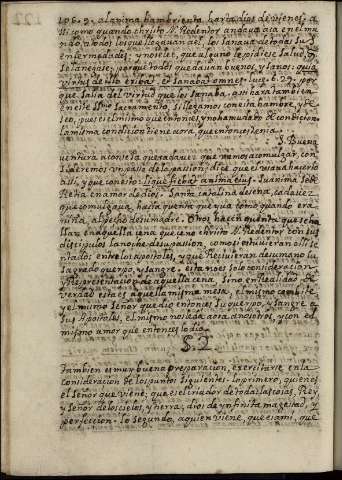 106. 9. alanima hambrienta harta dios de vienes, a
ssi como quando christo N. Redentor andava aca en el mu
ndo, a todos los que llegavan ael, los sanava de todas sus
enfermedades, y no se lee, que alguno le pidiese salud, q
se la negase, porque todos quedavan buenos, y sanos: quia
virtus de illo exibat, et sanabat omnes. luc. 6. 19. por
que salia del virtud que los sanaba, assi hara tambien
en este ssmo Sacramento, si llegamos con esta hambre, y de
seo, pues es el mismo que entonces, y no ha mudado de condicion
la misma condicion tiene aora, que entonces tenia
S. Buena
ventura aconseja que cada vez que vamos a comulgar, con
sideremos un passo de la passion, y dice que el usava hacerlo
assi, y que con esto liquefiebat anima eius. Su anima se de
rretia en amor de dios. Santa catalina de sena, cada vez
que comulgava, hacia quenta que iva como quando era
niña, al pecho de su madre. Otros hacen quenta que se ha
llan en aquella cena que ceno christo N. Redentor con sus
discipulos la noche de su passion, como si estuvieran alli se
ntados entre los apostoles, y que Resivieran de su mano su
sagrado cuerpo, y sangre. esta no es solo consideracion, y
Representacion de aquella cena. Sino en realidad de
verdad esta es aquella misma mesa, el mismo combite,
y el mismo Señor que dio entonces su cuerpo, y sangre a
sus Apostoles, el mismo nos le da aora a nosotros, y con el
mismo amor que entonces lo dio.
S. 2
tambien es muy buena preparacion, exercitarse en la
consideracion de los puntos siguientes. lo primero, quien es
el Señor que viene, que es el criador de todas las cosas, Rey,
y Señor de los cielos, y tierra, dios de ynfinita magestad, y
perfeccion. lo segundo, a quien viene, que es a mi, que